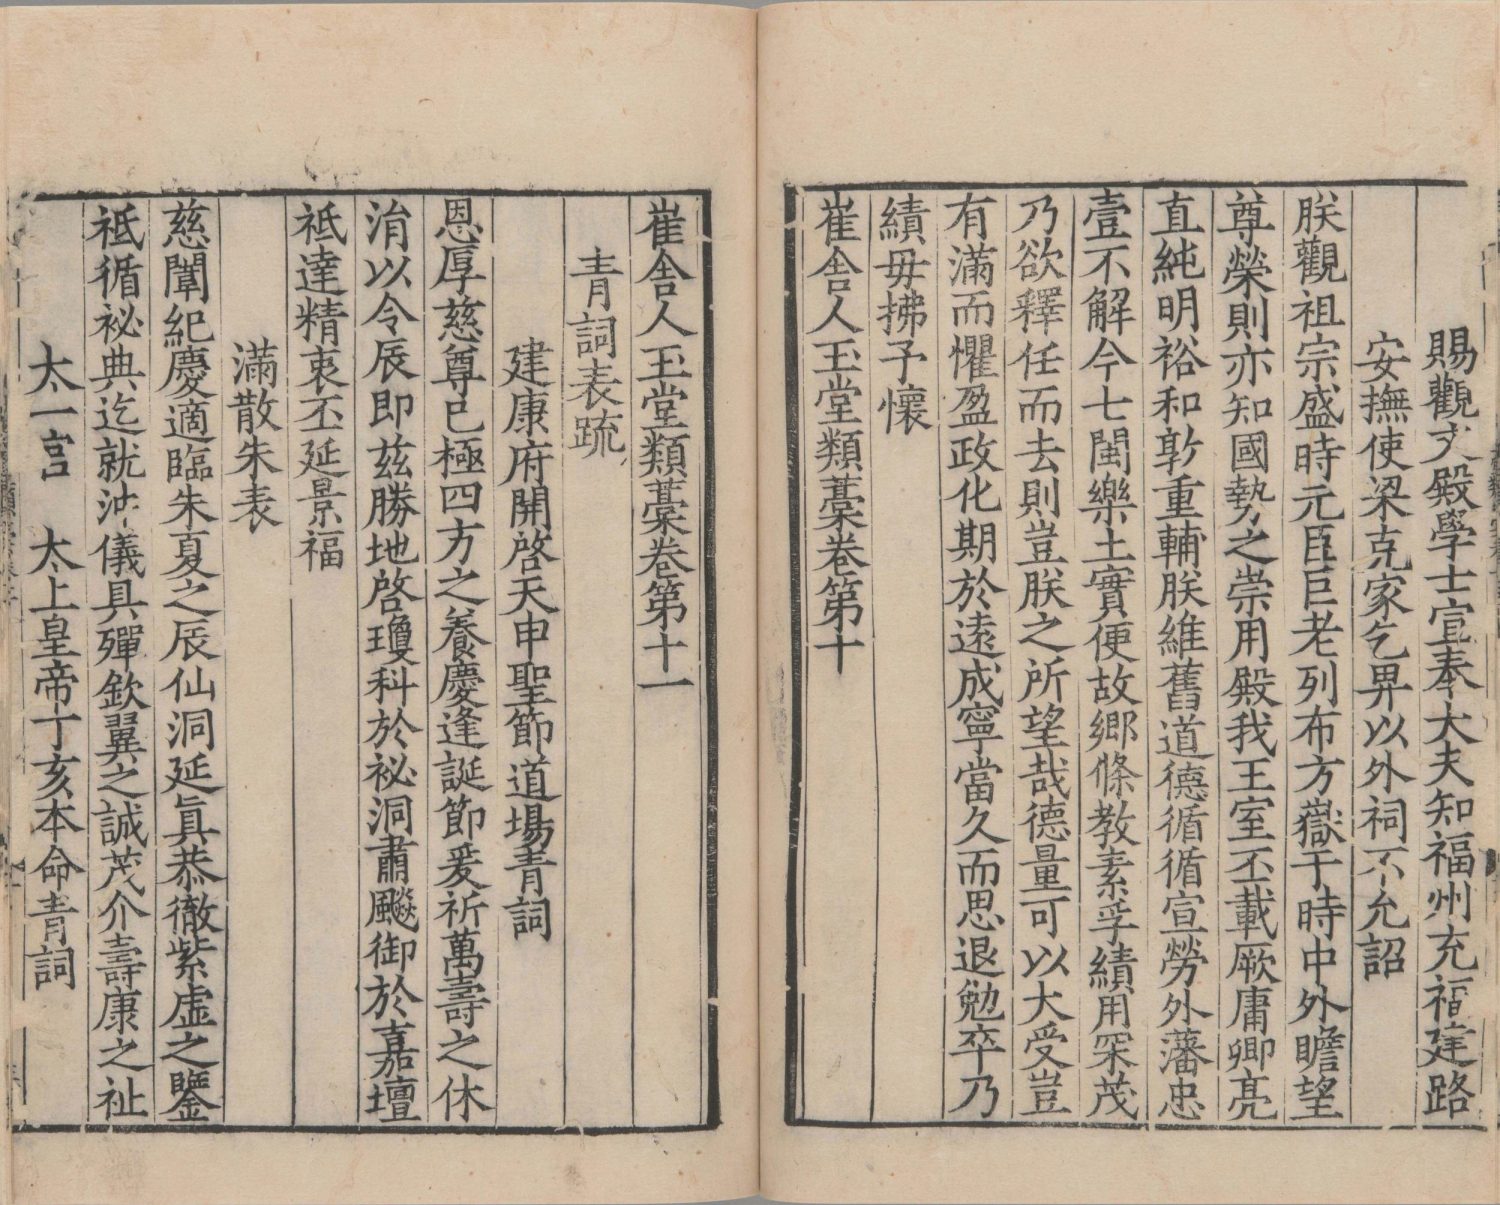 賜觀文殿學士宣奉大夫知福州充福建路
安撫使梁克家乞畀以外祠不允詔
朕觀祖宗盛時元臣巨老列布方嶽于時中外瞻望
尊榮則亦知國勢之崇用殿我王室丕載厥庸卿亮
直純明裕和敦重輔朕維舊道德循循宣勞外藩忠
壹不解今七閩樂土實便故鄉條教素孚績用罙茂
乃欲釋任而去則豈朕之所望哉德量可以大受豈
有滿而懼盈政化期於遠成寧當久而思退勉卒乃
績毋拂予懷
崔舍人玉堂類藁卷第十
崔舍人玉堂類藁卷第十一
青詞表疏
建康府開啓天申聖節道場青詞
恩厚慈尊已極四方之養慶逢誕節爰祈萬壽之休
涓以令辰即茲勝地啓瓊科於祕洞肅飈御於嘉壇
祗達精衷丕延景福
滿散朱表
慈闈紀慶適臨朱夏之辰仙洞延眞恭徹紫虛之鑒
祗循祕典迄就沖儀具殫欽翼之誠茂介壽康之祉
太一宮　太上皇帝丁亥本命青詞